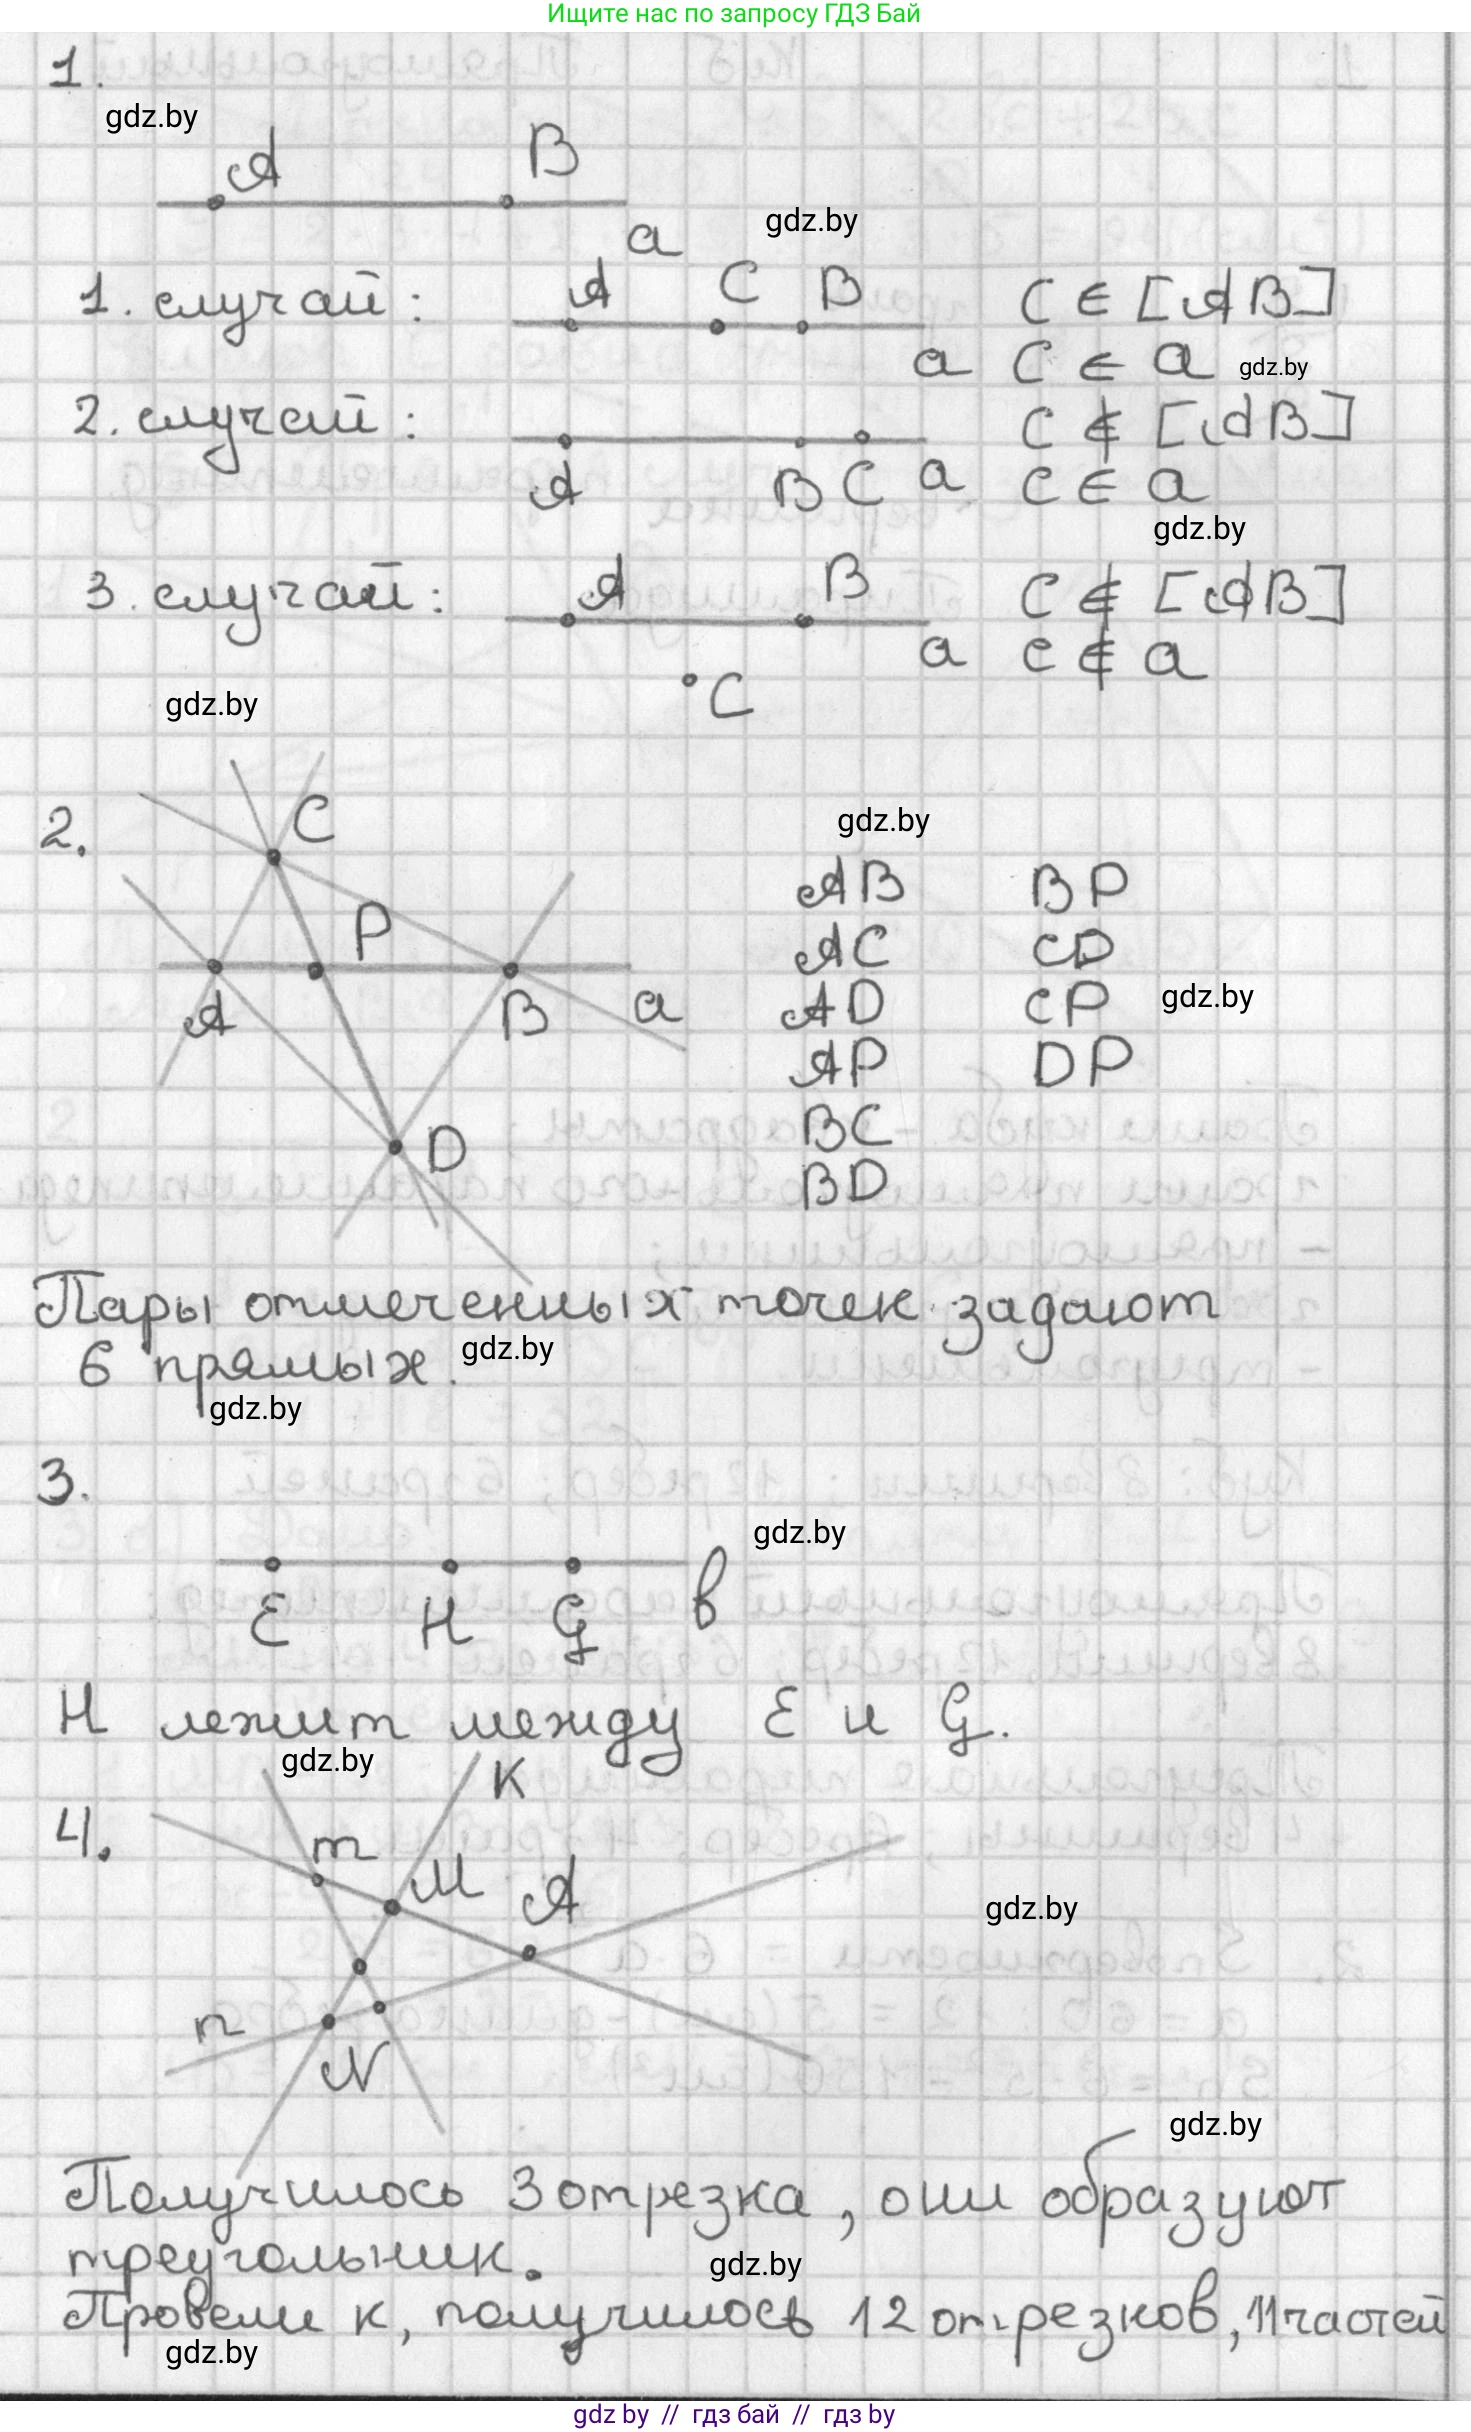 Ищите нас по запросу ГДЗ Бай
1.
gdz.by
A B
a
gdz.by
1. случай: A C B a C ∈ [AB]
C ∈ a
gdz.by
2. случай: A B C a C ∉ [AB]
C ∈ a
gdz.by
3. случай: A B a C ∉ [AB]
C ∉ a
C
gdz.by
2.
C
P
A B a
D
gdz.by
AB BP
AC CD
AD CP
gdz.by
AP DP
BC
BD
Пары отмеченных точек задают
6 прямых.
gdz.by
gdz.by
3.
gdz.by
E H G в
H лежит между E и G.
gdz.by
4.
K
m M A
n
N
gdz.by
gdz.by
Получилось 3 отрезка, они образуют
треугольник.
gdz.by
Провели к, получилось 12 отрезков, 11 частей
gdz.by
gdz by // гдз бай // гдз by